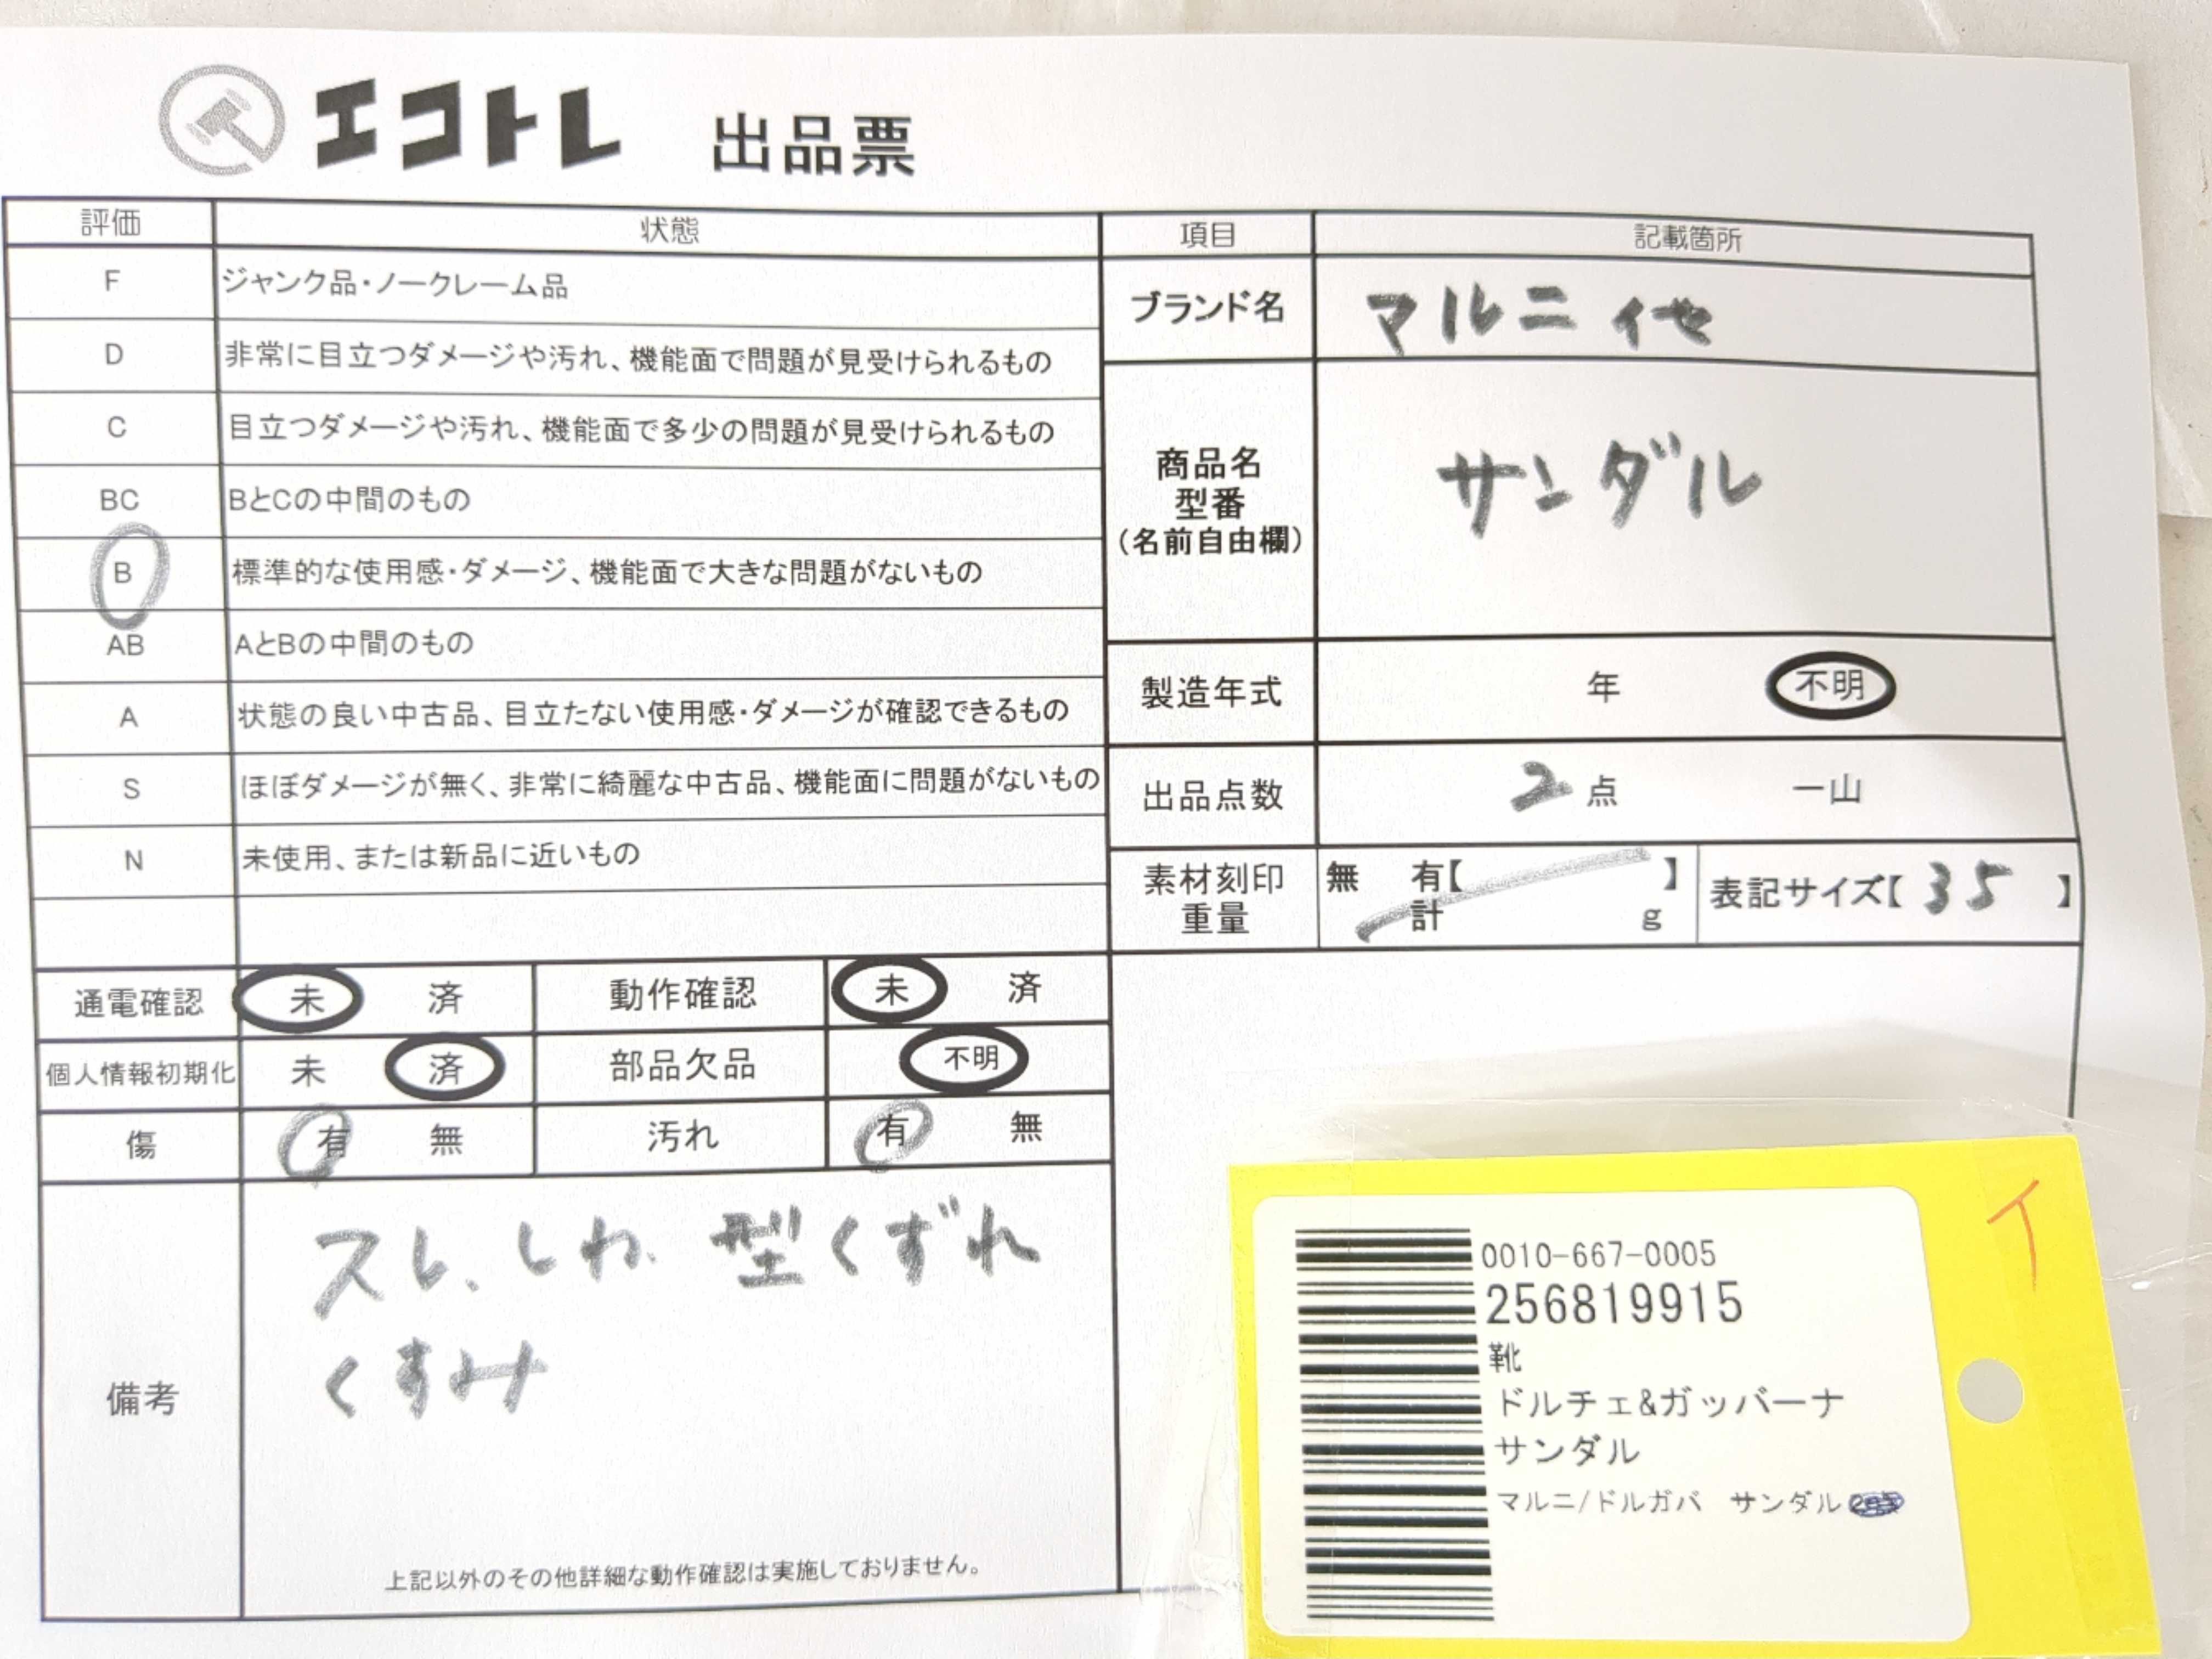 エコトレ 出品票
評価 状態 項目 記載箇所
F ジャンク品・ノークレーム品
D 非常に目立つダメージや汚れ、機能面で問題が見受けられるもの
C 目立つダメージや汚れ、機能面で多少の問題が見受けられるもの
BC BとCの中間のもの
B 標準的な使用感・ダメージ、機能面で大きな問題がないもの
AB AとBの中間のもの
A 状態の良い中古品、目立たない使用感・ダメージが確認できるもの
S ほぼダメージが無く、非常に綺麗な中古品、機能面に問題がないもの
N 未使用、または新品に近いもの
ブランド名 マルニ 他
商品名
型番
(名前自由欄)
サンダル
製造年式 年 不明
出品点数 2点 一山
素材刻印 無 有【 】
重量 計 g
表記サイズ【 35 】
通電確認 未 済 動作確認 未 済
個人情報初期化 未 済 部品欠品 不明
傷 有 無 汚れ 有 無
備考
スレ、しわ、型くずれ
くすみ
上記以外のその他詳細な動作確認は実施しておりません。
イ
0010-667-0005
256819915
靴
ドルチェ&ガッバーナ
サンダル
マルニ/ドルガバ サンダル